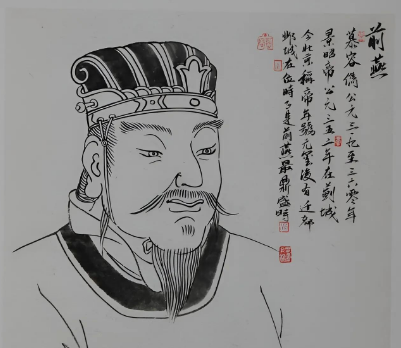 前燕
慕容儁公元三一九至三六零年
景昭帝公元三五二年在蓟城
今北京稱帝年號元璽後迁都
鄴城在位時是前燕最鼎盛時